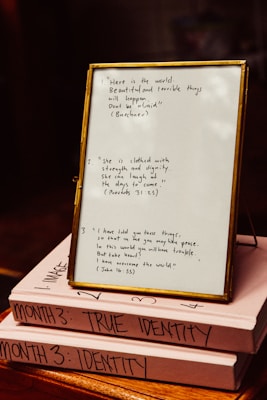 1. "Here is the world.
Beautiful and terrible things
will happen.
Dont be afraid."
(Buechner)
2. "She is clothed with
strength and dignity.
She can laugh at
the days to come."
(Proverbs 31:25)
3. "I have told you these things,
so that in me you may have peace.
In this world you will have trouble.
But take heart!
I have overcome the world"
(John 16:33)
1. IMAGE
2
3
4
MONTH 3: TRUE IDENTITY
MONTH 3: IDENTITY